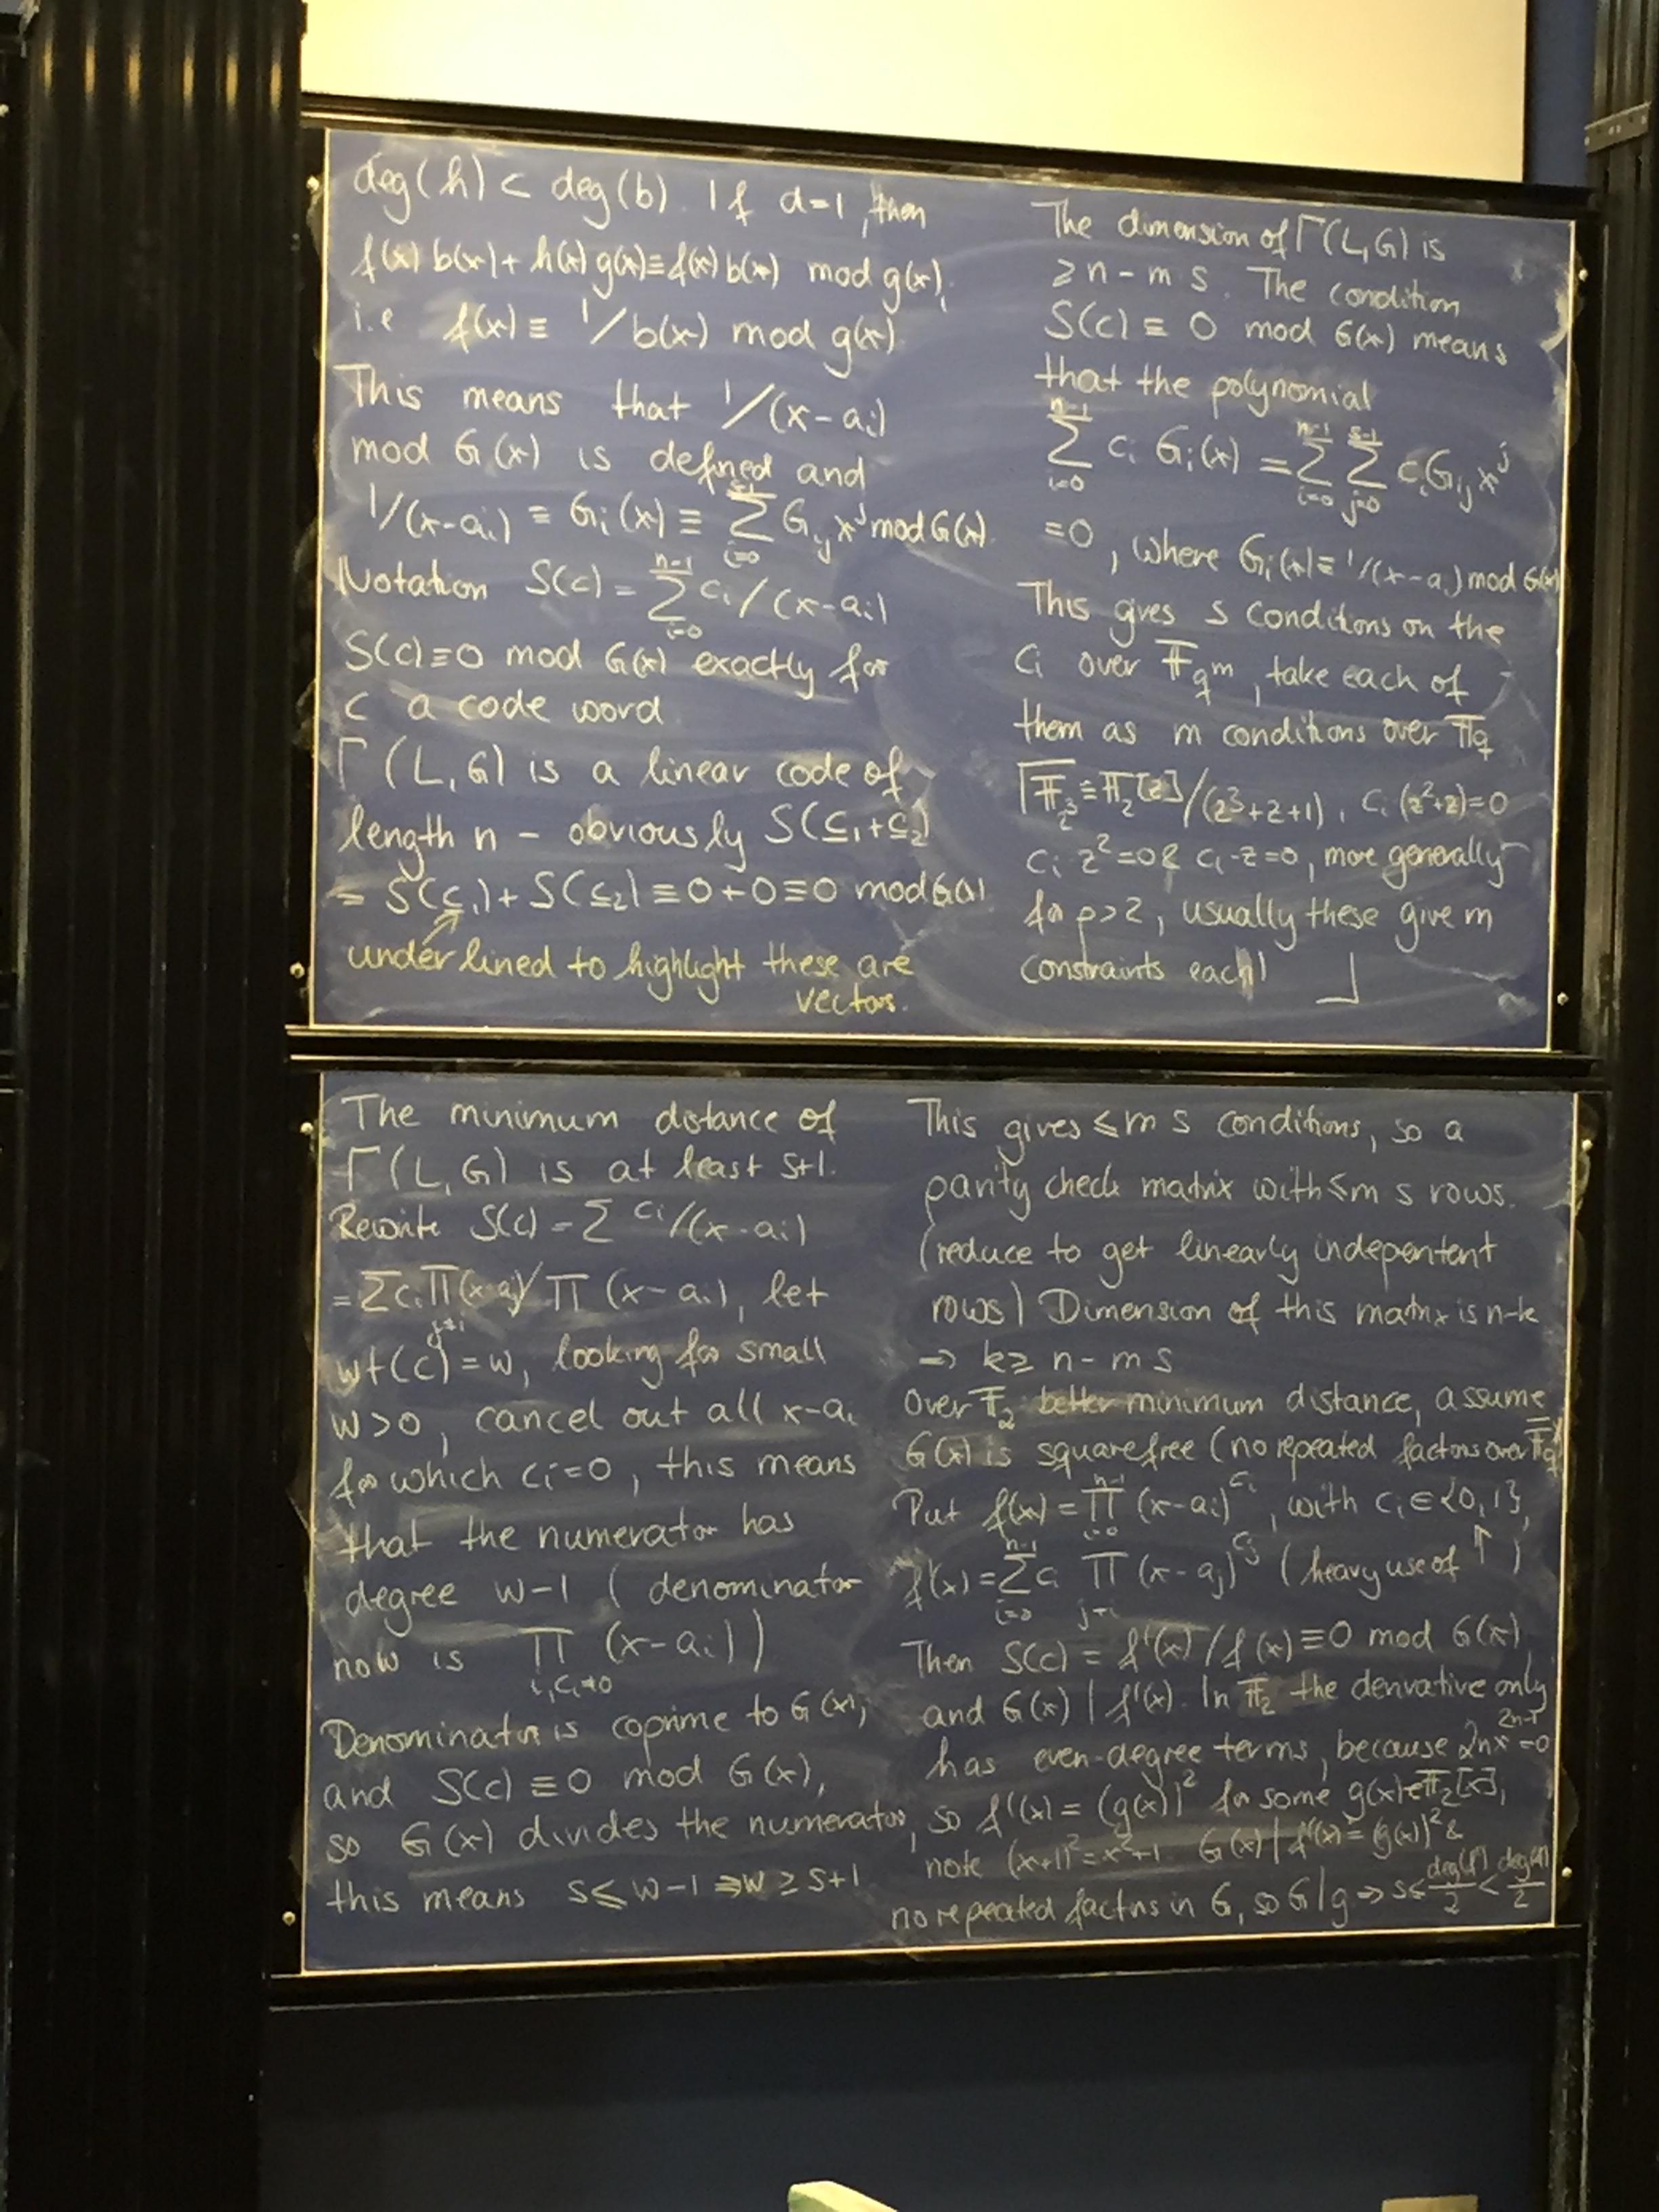 deg(h) < deg(b). If d=1, then
f(x) b(x) + h(x) g(x) ≡ f(x) b(x) mod g(x),
i.e f(x) ≡ 1/b(x) mod g(x).
This means that 1/(x-a_i)
mod G(x) is defined and
1/(x-a_i) ≡ G_i(x) ≡ ∑_{i=0}^{s-1} G_ij x^j mod G(x).
Notation S(c) = ∑_{i=0}^{n-1} c_i/(x-a_i)
S(c) ≡ 0 mod G(x) exactly for
c a code word
Γ(L,G) is a linear code of
length n - obviously S(c_1+c_2)
= S(c_1) + S(c_2) ≡ 0+0 ≡ 0 mod G(x).
underlined to highlight these are
vectors.
The dimension of Γ(L,G) is
≥ n-m s. The condition
S(c) ≡ 0 mod G(x) means
that the polynomial
∑_{i=0}^{n-1} c_i G_i(x) = ∑_{i=0}^{n-1} ∑_{j=0}^{s-1} c_i G_ij x^j
=0, where G_i(x) ≡ 1/(x-a_i) mod G(x)
This gives s conditions on the
c_i over F_q^m, take each of
them as m conditions over F_q
⌈F_2^3 ≅ F_2[z]/(z^3+z+1), c_i (z^2+z)=0
c_i z^2=0 & c_i·z=0, more generally
for p>2, usually these give m
constraints each) ⌋
The minimum distance of
Γ(L,G) is at least s+1.
Rewrite S(c) = ∑ c_i/(x-a_i)
= ∑ c_i ∏_{j≠i} (x-a_j)/∏ (x-a_i), let
wt(c) = w, looking for small
w>0, cancel out all x-a_i
for which c_i=0, this means
that the numerator has
degree w-1 (denominator
now is ∏_{i, c_i≠0} (x-a_i))
Denominator is coprime to G(x),
and S(c) ≡ 0 mod G(x),
so G(x) divides the numerator,
this means s ≤ w-1 ⇒ w ≥ s+1
This gives ≤ m s conditions, so a
parity check matrix with ≤ m s rows.
(reduce to get linearly indepentent
rows) Dimension of this matrix is n-k
⇒ k ≥ n-m s
Over F_2 better minimum distance, assume
G(x) is squarefree (no repeated factors over F_q)
Put f(x) = ∏_{i=0}^{n-1} (x-a_i)^{c_i}, with c_i ∈ {0,1},
f'(x) = ∑_{i=0}^{n-1} c_i ∏_{j≠i} (x-a_j)^{c_j} (heavy use of ↑)
Then S(c) = f'(x)/f(x) ≡ 0 mod G(x)
and G(x) | f'(x). In F_2 the derivative only
has even-degree terms, because 2n x^{2n-1} = 0
so f'(x) = (g(x))^2 for some g(x) ∈ F_2[x],
note (x+1)^2 = x^2+1. G(x) | f'(x) = (g(x))^2 &
no repeated factors in G, so G|g ⇒ s ≤ deg(f')/2 < deg(f)/2